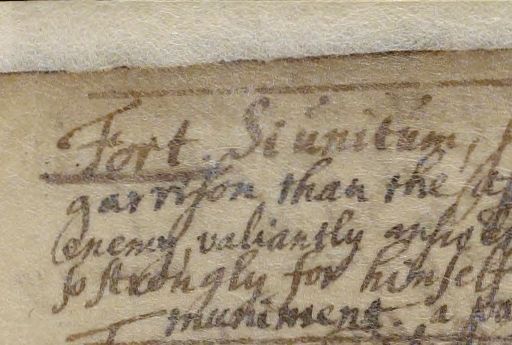 Fort. Si unitum,
garrison than the
enemy, valiantly
so strongly for himself
muniment. a